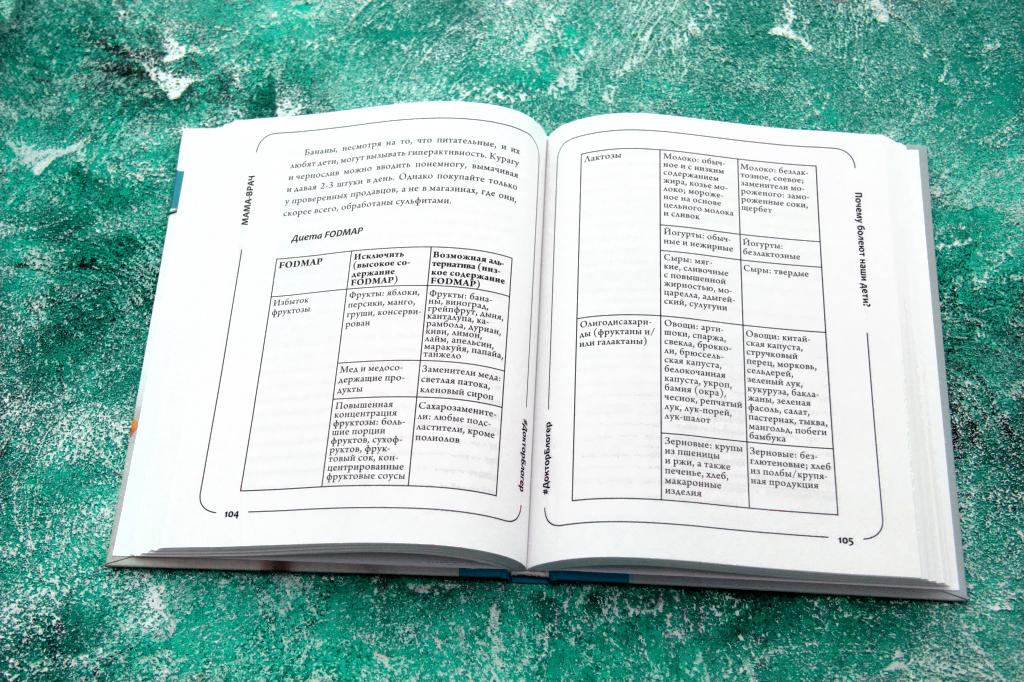 МАМА-ВРАЧ
Бананы, несмотря на то, что питательные, и их
любят дети, могут вызывать гиперактивность. Курагу
и чернослив можно вводить понемногу, вымачивая
и давая 2-3 штуки в день. Однако покупайте только
у проверенных продавцов, а не в магазинах, где они,
скорее всего, обработаны сульфитами.
Диета FODMAP
FODMAP
Исключить
(высокое со-
держание
FODMAP)
Возможная аль-
тернатива (низ-
кое содержание
FODMAP)
Избыток
фруктозы
Фрукты: яблоки,
персики, манго,
груши, консерви-
рован
Фрукты: бана-
ны, виноград,
грейпфрут, дыня,
канталупа, ка-
рамбола, дуриан,
киви, лимон,
лайм, апельсин,
маракуйя, папайа,
танжело
Мед и медосо-
держащие про-
дукты
Заменители меда:
светлая патока,
кленовый сироп
Повышенная
концентрация
фруктозы: боль-
шие порции
фруктов, сухоф-
руктов, фрук-
товый сок, кон-
центрированные
фруктовые соусы
Сахарозамените-
ли: любые подс-
ластители, кроме
полиолов
#ДокторБлогер
104
Лактозы
Молоко: обыч-
ное и с низким
содержанием
жира, козье мо-
локо; мороже-
ное на основе
цельного молока
и сливок
Молоко: безлак-
тозное, соевое;
заменители мо-
роженого: замо-
роженные соки,
щербет
Йогурты: обыч-
ные и нежирные
Йогурты:
безлактозные
Сыры: мяг-
кие, сливочные
с повышенной
жирностью, мо-
царелла, адыгей-
ский, сулугуни
Сыры: твердые
Олигодисахари-
ды (фруктаны и/
или галактаны)
Овощи: арти-
шоки, спаржа,
свекла, брокко-
ли, брюссель-
ская капуста,
белокочанная
капуста, укроп,
бамия (окра),
чеснок, репчатый
лук, лук-порей,
лук-шалот
Овощи: китай-
ская капуста,
стручковый
перец, морковь,
сельдерей,
зеленый лук,
кукуруза, бакла-
жаны, зеленая
фасоль, салат,
пастернак, тыква,
мангольд, побеги
бамбука
Зерновые: крупы
из пшеницы
и ржи, а также
печенье, хлеб,
макаронные
изделия
Зерновые: без-
глютеновые; хлеб
из полбы/крупя-
ная продукция
#ДокторБлогер
Почему болеют наши дети?
105